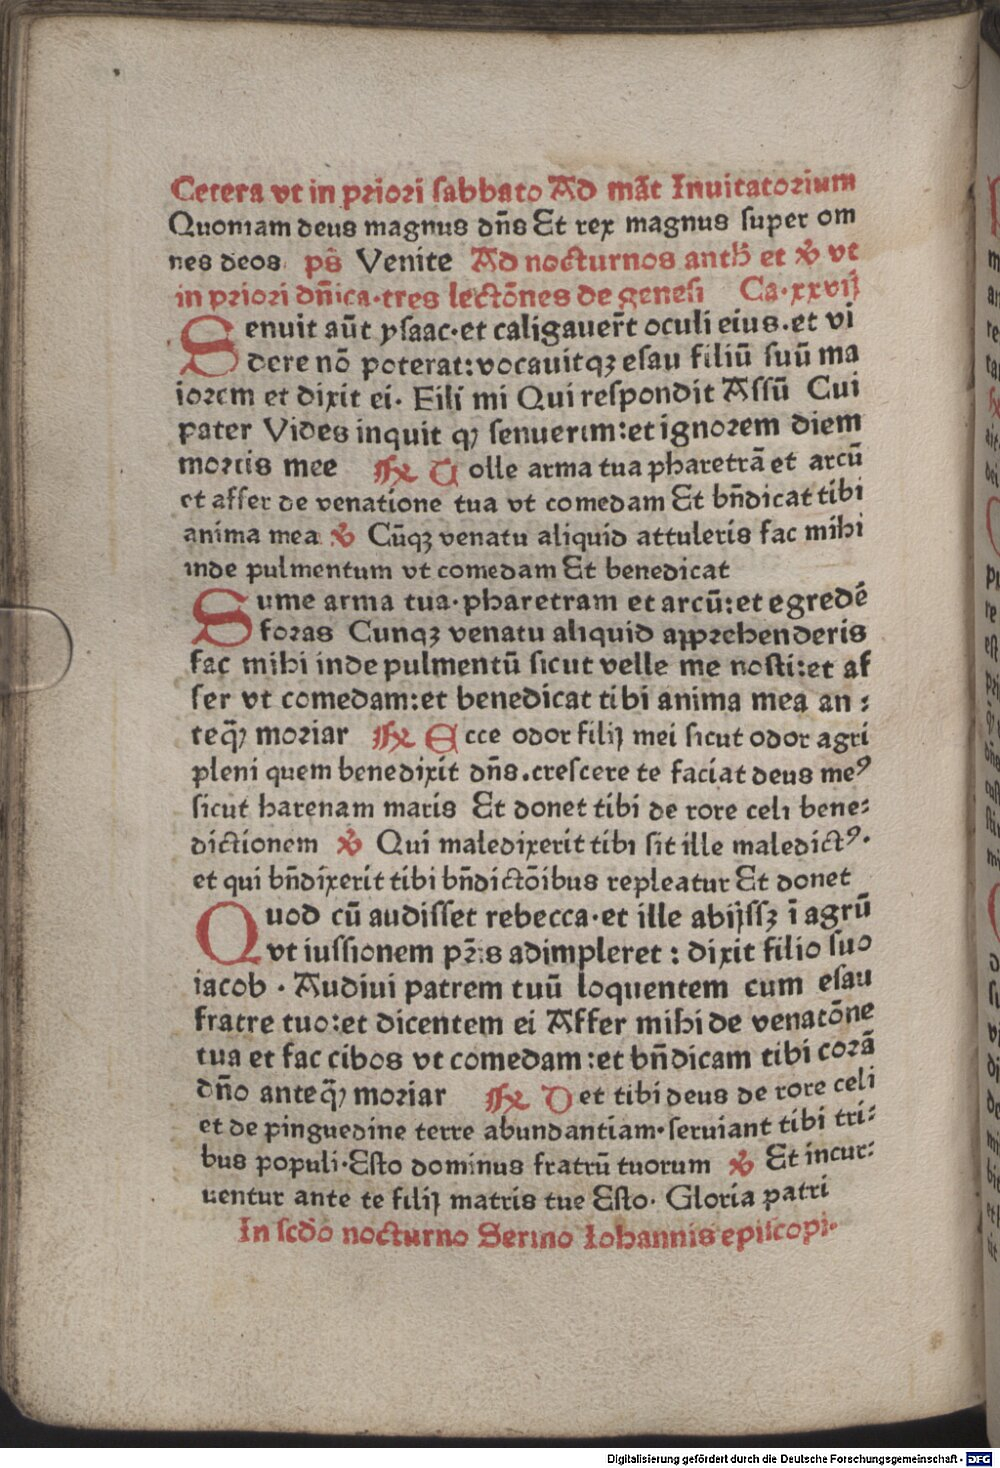 Cetera vt in priori sabbato Ad mãt Inuitatorium
Quoniam deus magnus dñs Et rex magnus super om
nes deos ps̃ Venite Ad nocturnos anth̃ et ꝟ vt
in priori dñica·tres lectõnes de genesi Ca·xxvij
Senuit aũt ysaac·et caligauer̃t oculi eius·et vi
dere nõ poterat:vocauitqꝫ esau filiũ suũ ma
iorem et dixit ei· Fili mi Qui respondit Assũ Cui
pater Vides inquit ꝙ senuerim:et ignorem diem
mortis mee ℟ Tolle arma tua pharetrã et arcũ
et affer de venatione tua vt comedam Et bñdicat tibi
anima mea ꝟ Cũqꝫ venatu aliquid attuleris fac mihi
inde pulmentum vt comedam Et benedicat
Sume arma tua·pharetram et arcũ:et egredẽ
foras Cunqꝫ venatu aliquid apprehenderis
fac mihi inde pulmentũ sicut velle me nosti:et af
fer vt comedam:et benedicat tibi anima mea an :
teq̃ꝫ moriar ℟ Ecce odor filij mei sicut odor agri
pleni quem benedixit dñs.crescere te faciat deus meꝰ
sicut harenam maris Et donet tibi de rore celi bene:
dictionem ꝟ Qui maledixerit tibi sit ille maledictꝰ·
et qui bñdixerit tibi bñdictõibus repleatur Et donet
Quod cũ audisset rebecca·et ille abijssꝫ ĩ agrũ
vt iussionem pr̃is adimpleret : dixit filio suo
iacob · Audiui patrem tuũ loquentem cum esau
fratre tuo:et dicentem ei Affer mihi de venatõne
tua et fac cibos vt comedam:et bñdicam tibi corã
dño anteq̃ꝫ moriar ℟ Det tibi deus de rore celi
et de pinguedine terre abundantiam·seruiant tibi tri:
bus populi·Esto dominus fratrũ tuorum ꝟ Et incur:
uentur ante te filij matris tue Esto· Gloria patri
In scdõ nocturno Sermo Iohannis episcopi·
Digitalisierung gefördert durch die Deutsche Forschungsgemeinschaft - DFG